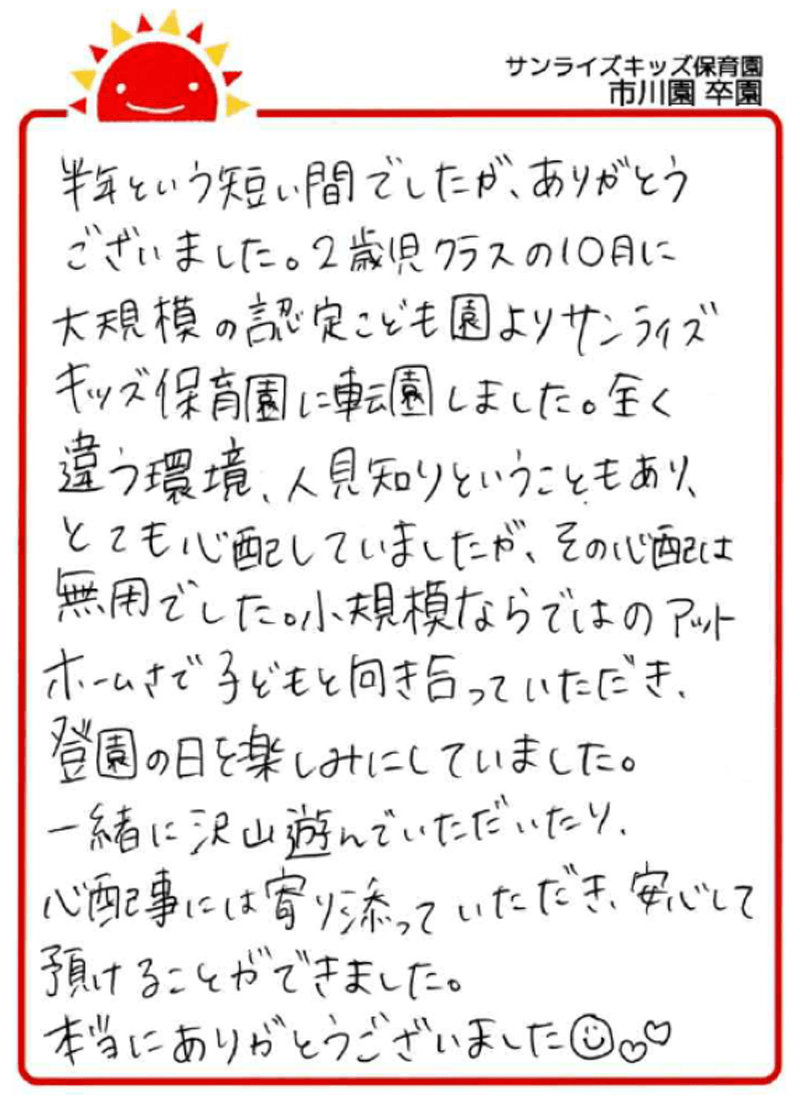 サンライズキッズ保育園
市川園 卒園
半年という短い間でしたが、ありがとう
ございました。2歳児クラスの10月に
大規模の認定こども園よりサンライズ
キッズ保育園に転園しました。全く
違う環境、人見知りということもあり、
とても心配していましたが、その心配は
無用でした。小規模ならではのアット
ホームさで子どもと向き合っていただき、
登園の日を楽しみにしていました。
一緒に沢山遊んでいただいたり、
心配事には寄り添っていただき、安心して
預けることができました。
本当にありがとうございました